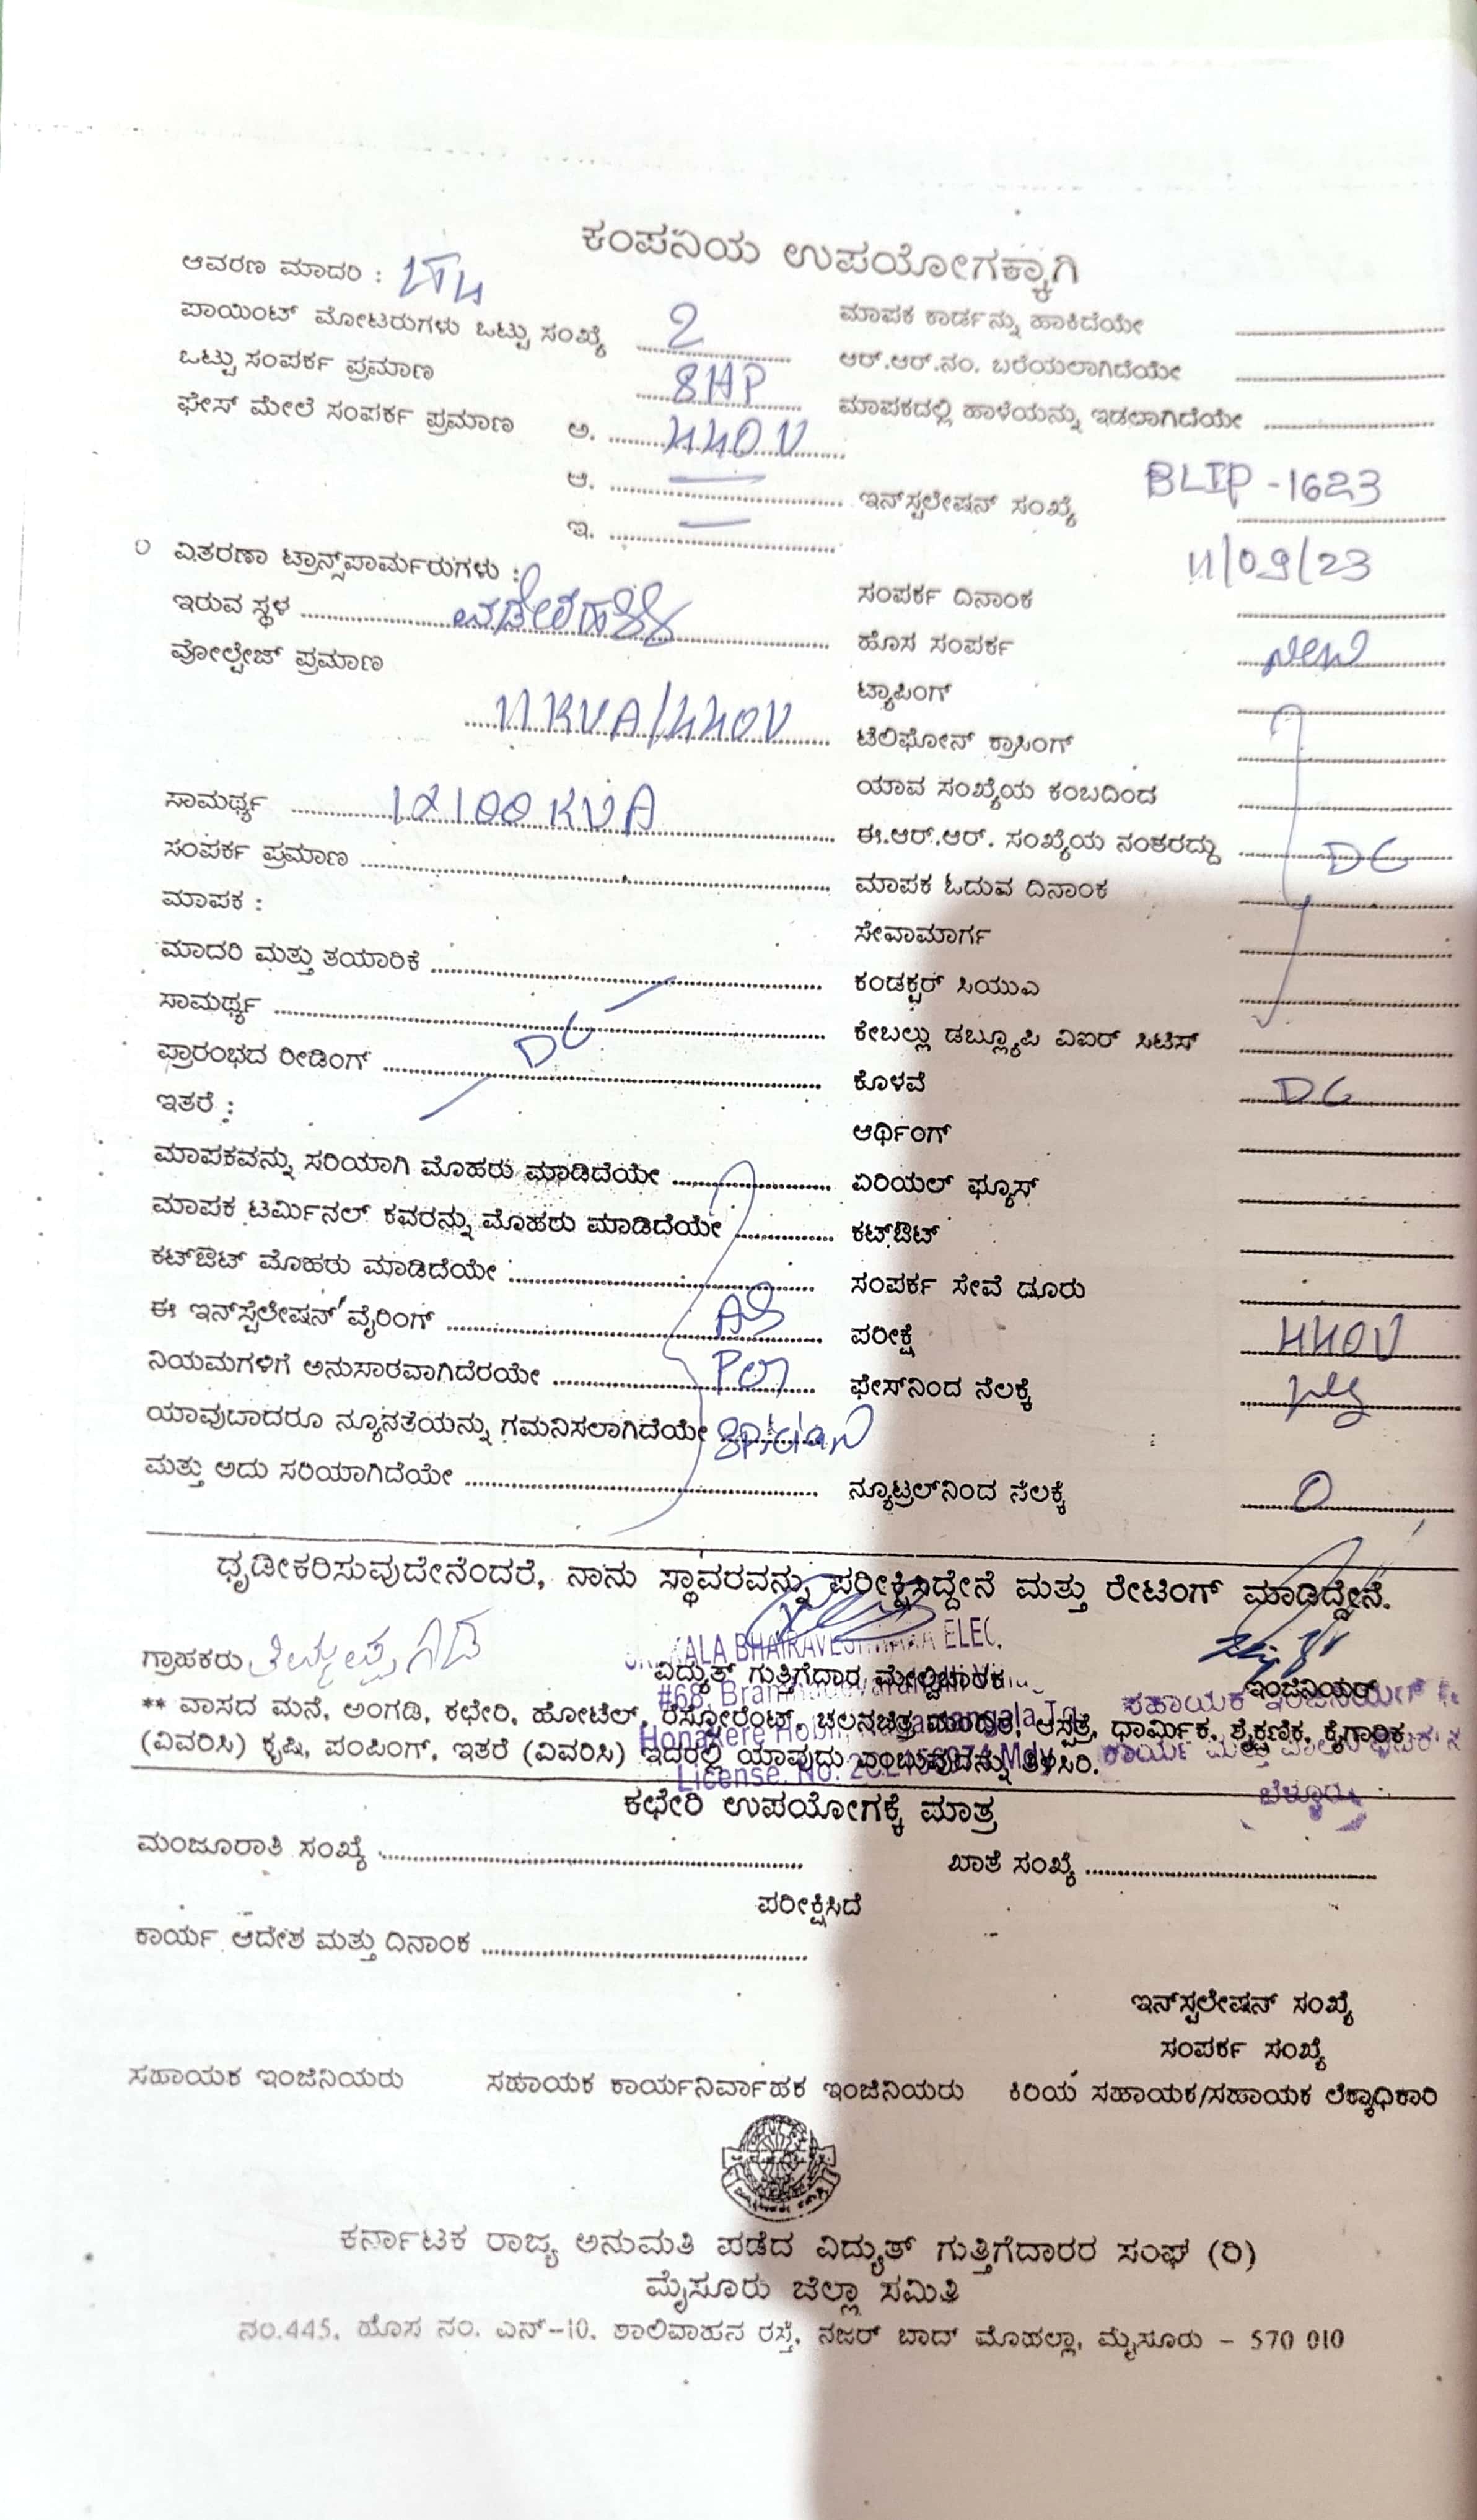 ಕಂಪನಿಯ ಉಪಯೋಗಕ್ಕಾಗಿ
ಆವರಣ ಮಾದರಿ : LT4
ಪಾಯಿಂಟ್ ಮೋಟರುಗಳು ಒಟ್ಟು ಸಂಖ್ಯೆ 2
ಒಟ್ಟು ಸಂಪರ್ಕ ಪ್ರಮಾಣ 8HP
ಫೇಸ್ ಮೇಲೆ ಸಂಪರ್ಕ ಪ್ರಮಾಣ ಅ. 440V
ಆ. —
ಇ. —
ವಿತರಣಾ ಟ್ರಾನ್ಸ್‌ಪಾರ್ಮರುಗಳು :
ಇರುವ ಸ್ಥಳ
ವೋಲ್ಟೇಜ್ ಪ್ರಮಾಣ
11KVA/440V
ಸಾಮರ್ಥ್ಯ 1X100 KVA
ಸಂಪರ್ಕ ಪ್ರಮಾಣ
ಮಾಪಕ :
ಮಾದರಿ ಮತ್ತು ತಯಾರಿಕೆ
ಸಾಮರ್ಥ್ಯ DC
ಪ್ರಾರಂಭದ ರೀಡಿಂಗ್
ಇತರೆ :
ಮಾಪಕವನ್ನು ಸರಿಯಾಗಿ ಮೊಹರು ಮಾಡಿದೆಯೇ
ಮಾಪಕ ಟರ್ಮಿನಲ್ ಕವರನ್ನು ಮೊಹರು ಮಾಡಿದೆಯೇ
ಕಟ್‌ಔಟ್ ಮೊಹರು ಮಾಡಿದೆಯೇ
ಈ ಇನ್‌ಸ್ಟೆಲೇಷನ್ ವೈರಿಂಗ್ AS
ನಿಯಮಗಳಿಗೆ ಅನುಸಾರವಾಗಿದೆರಯೇ Per
ಯಾವುದಾದರೂ ನ್ಯೂನತೆಯನ್ನು ಗಮನಿಸಲಾಗಿದೆಯೇ
ಮತ್ತು ಅದು ಸರಿಯಾಗಿದೆಯೇ
ಮಾಪಕ ಕಾರ್ಡನ್ನು ಹಾಕಿದೆಯೇ
ಆರ್.ಆರ್.ನಂ. ಬರೆಯಲಾಗಿದೆಯೇ
ಮಾಪಕದಲ್ಲಿ ಹಾಳೆಯನ್ನು ಇಡಲಾಗಿದೆಯೇ
ಇನ್‌ಸ್ಟಲೇಷನ್ ಸಂಖ್ಯೆ BLIP-1623
ಸಂಪರ್ಕ ದಿನಾಂಕ 11/09/23
ಹೊಸ ಸಂಪರ್ಕ New
ಟ್ಯಾಪಿಂಗ್
ಟೆಲಿಫೋನ್ ಕ್ರಾಸಿಂಗ್
ಯಾವ ಸಂಖ್ಯೆಯ ಕಂಬದಿಂದ
ಈ.ಆರ್.ಆರ್. ಸಂಖ್ಯೆಯ ನಂತರದ್ದು DC
ಮಾಪಕ ಓದುವ ದಿನಾಂಕ
ಸೇವಾಮಾರ್ಗ
ಕಂಡಕ್ಟರ್ ಸಿಯುಎ
ಕೇಬಲ್ಲು ಡಬ್ಲ್ಯೂಪಿ ವಿಐರ್ ಸಿಟಿಸ್
ಕೊಳವೆ DC
ಆರ್ಥಿಂಗ್
ಏರಿಯಲ್ ಫ್ಯೂಸ್
ಕಟ್‌ಔಟ್
ಸಂಪರ್ಕ ಸೇವೆ ಡೂರು
ಪರೀಕ್ಷೆ 440V
ಫೇಸ್‌ನಿಂದ ನೆಲಕ್ಕೆ
ನ್ಯೂಟ್ರಲ್‌ನಿಂದ ನೆಲಕ್ಕೆ 0
ಧೃಡೀಕರಿಸುವುದೇನೆಂದರೆ, ನಾನು ಸ್ಥಾವರವನ್ನು ಪರೀಕ್ಷಿಸಿದ್ದೇನೆ ಮತ್ತು ರೇಟಿಂಗ್ ಮಾಡಿದ್ದೇನೆ.
ಗ್ರಾಹಕರು ವಿದ್ಯುತ್ ಗುತ್ತಿಗೆದಾರ ಮೇಲ್ವಿಚಾರಕ ಇಂಜಿನಿಯರ್
KALA BHAIRAVESHWARA ELEC.
** ವಾಸದ ಮನೆ, ಅಂಗಡಿ, ಕಛೇರಿ, ಹೋಟೆಲ್, ರೆಸ್ಟೋರೆಂಟ್, ಚಲನಚಿತ್ರ ಮಂದಿರ, ಆಸ್ಪತ್ರೆ, ಧಾರ್ಮಿಕ, ಶೈಕ್ಷಣಿಕ, ಕೈಗಾರಿಕ
(ವಿವರಿಸಿ) ಕೃಷಿ, ಪಂಪಿಂಗ್, ಇತರೆ (ವಿವರಿಸಿ) ಇದರಲ್ಲಿ ಯಾವುದು ಎಂಬುವುದನ್ನು ತಿಳಿಸಿರಿ.
License. No.
ಬೆಳ್ಳೂರು
ಕಛೇರಿ ಉಪಯೋಗಕ್ಕೆ ಮಾತ್ರ
ಮಂಜೂರಾತಿ ಸಂಖ್ಯೆ ಖಾತೆ ಸಂಖ್ಯೆ
ಪರೀಕ್ಷಿಸಿದೆ
ಕಾರ್ಯ ಆದೇಶ ಮತ್ತು ದಿನಾಂಕ
ಇನ್‌ಸ್ಟಲೇಷನ್ ಸಂಖ್ಯೆ
ಸಂಪರ್ಕ ಸಂಖ್ಯೆ
ಸಹಾಯಕ ಇಂಜಿನಿಯರು ಸಹಾಯಕ ಕಾರ್ಯನಿರ್ವಾಹಕ ಇಂಜಿನಿಯರು ಕಿರಿಯ ಸಹಾಯಕ/ಸಹಾಯಕ ಲೆಕ್ಕಾಧಿಕಾರಿ
ಕರ್ನಾಟಕ ರಾಜ್ಯ ಅನುಮತಿ ಪಡೆದ ವಿದ್ಯುತ್ ಗುತ್ತಿಗೆದಾರರ ಸಂಘ (ರಿ)
ಮೈಸೂರು ಜಿಲ್ಲಾ ಸಮಿತಿ
ನಂ.445, ಹೊಸ ನಂ. ಎನ್-10, ಶಾಲಿವಾಹನ ರಸ್ತೆ, ನಜರ್ ಬಾದ್ ಮೊಹಲ್ಲಾ, ಮೈಸೂರು - 570 010